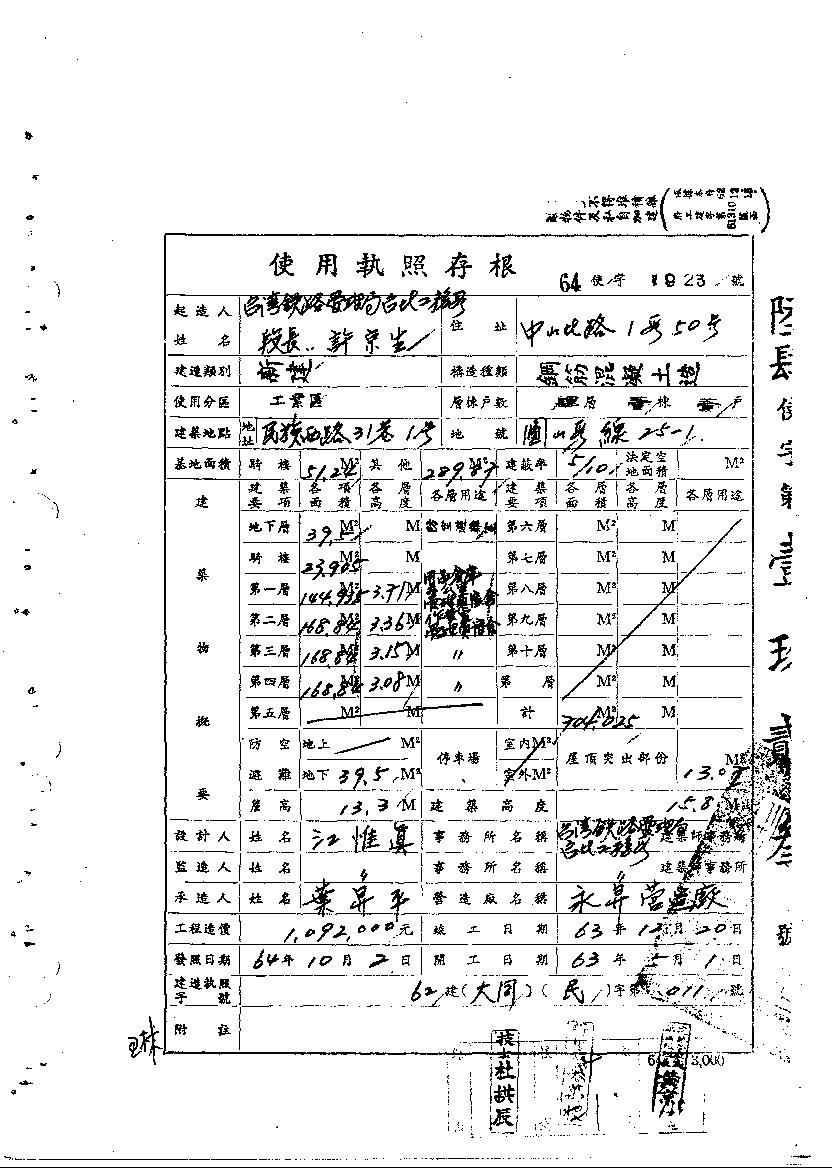 使用執照存根
64 使字 1923 號
起造人姓名 台湾鉄路管理局台北工務段 段長 許京生 住址 中山北路1段50号
建造類別 新建 構造種類 鋼筋混凝土造
使用分區 工業區 層棟戶數 層 棟 戶
建築地點 地址 民族西路31巷1号 地號 圓山段 線25-1
基地面積 騎樓 51.24 M² 其他 289.87 M² 建蔽率 5/10 法定空地面積 M²
建築物概要 建築要項 各項面積 各層高度 各層用途 建築要項 各層面積 各層高度 各層用途
地下層 39.5 M² M 第六層 M² M
騎樓 23.905 M² M 第七層 M² M
第一層 144.935 M² 3.71 M 第八層 M² M
第二層 168.84 M² 3.36 M 第九層 M² M
第三層 168.84 M² 3.15 M 〃 第十層 M² M
第四層 168.84 M² 3.08 M 〃 第 層 M² M
第五層 M² M 計 704.025 M² M
防空 地上 M² 停車場 室內 M² 屋頂突出部份 M²
避難 地下 39.5 M² 室外 M² 13.0
屋高 13.3 M 建築高度 15.8 M
設計人 姓名 江惟真 事務所名稱 台湾鉄路管理局台北工務段 建築師事務所
監造人 姓名 〃 事務所名稱 建築師事務所
承造人 姓名 葉昇平 營造廠名稱 永昇营造廠
工程造價 1,092,000元 竣工日期 63年12月20日
發照日期 64年10月2日 開工日期 63年5月1日
建造執照字號 62建(大同)(民)字第 011 號
附註
3,000
技士杜拱辰
使字第壹玖貳叁號